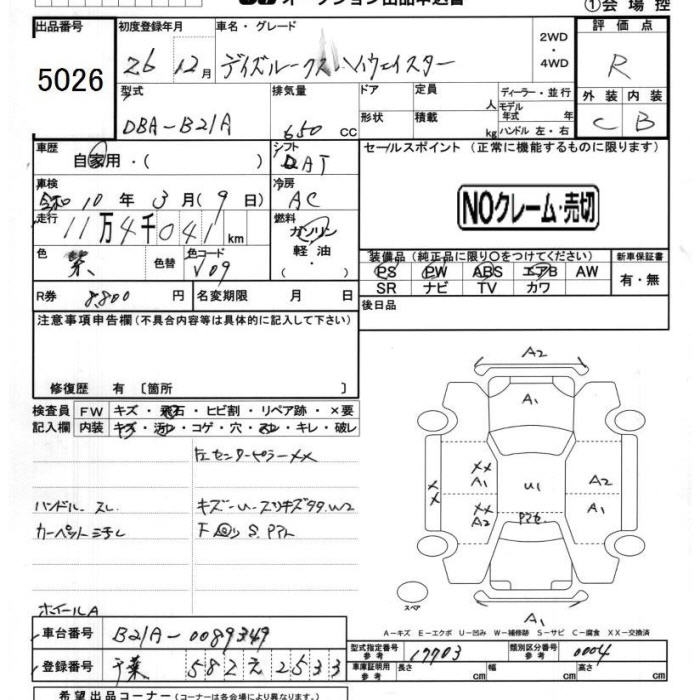 オークション出品申込書
①会場控
出品番号
5026
初度登録年月
26 12月
車名・グレード
デイズルークス ハイウェイスター
2WD
・
4WD
評価点
R
外装 内装
C B
型式
DBA-B21A
排気量
650 CC
ドア
形状
定員 人
積載 kg
ディーラー・並行
モデル年式 年
ハンドル 左・右
車歴
自家用・( )
シフト
DAT
セールスポイント (正常に機能するものに限ります)
NOクレーム・売切
車検
令和 10年 3月(9日)
冷房
AC
走行
11万4千041 km
燃料
ガソリン
・
軽油
・
色
紫
色替
色コード
V09
装備品 (純正品に限り〇をつけてください)
PS PW ABS エアB AW
SR ナビ TV カワ
新車保証書
有・無
R券 8,800 円
名変期限 月 日
後日品
注意事項申告欄 (不具合内容等は具体的に記入して下さい)
修復歴 有 〔箇所 〕
検査員記入欄
FW キズ・飛石・ヒビ割・リペア跡・×要
内装 キズ・汚れ・コゲ・穴・スレ・キレ・破レ
左センターピラーXX
ハンドル スレ
カーペット
A2
A1
XX
XX
A2
XX
U1
A2
A1
A1
スペア
ホイールA
A-キズ E-エクボ U-凹み W-補修跡 S-サビ C-腐食 XX-交換済
車台番号 B21A-0089349
登録番号 千葉 582 え 2533
型式指定番号 参考 17703
類別区分番号 参考 0004
車庫証明用 参考 長さ cm 幅 cm 高さ cm
希望出品コーナー (コーナーは各会場により異なります。)